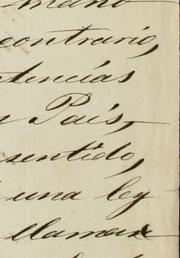 mano
contrario,
tencias
País,
sentido,
una ley
llamar